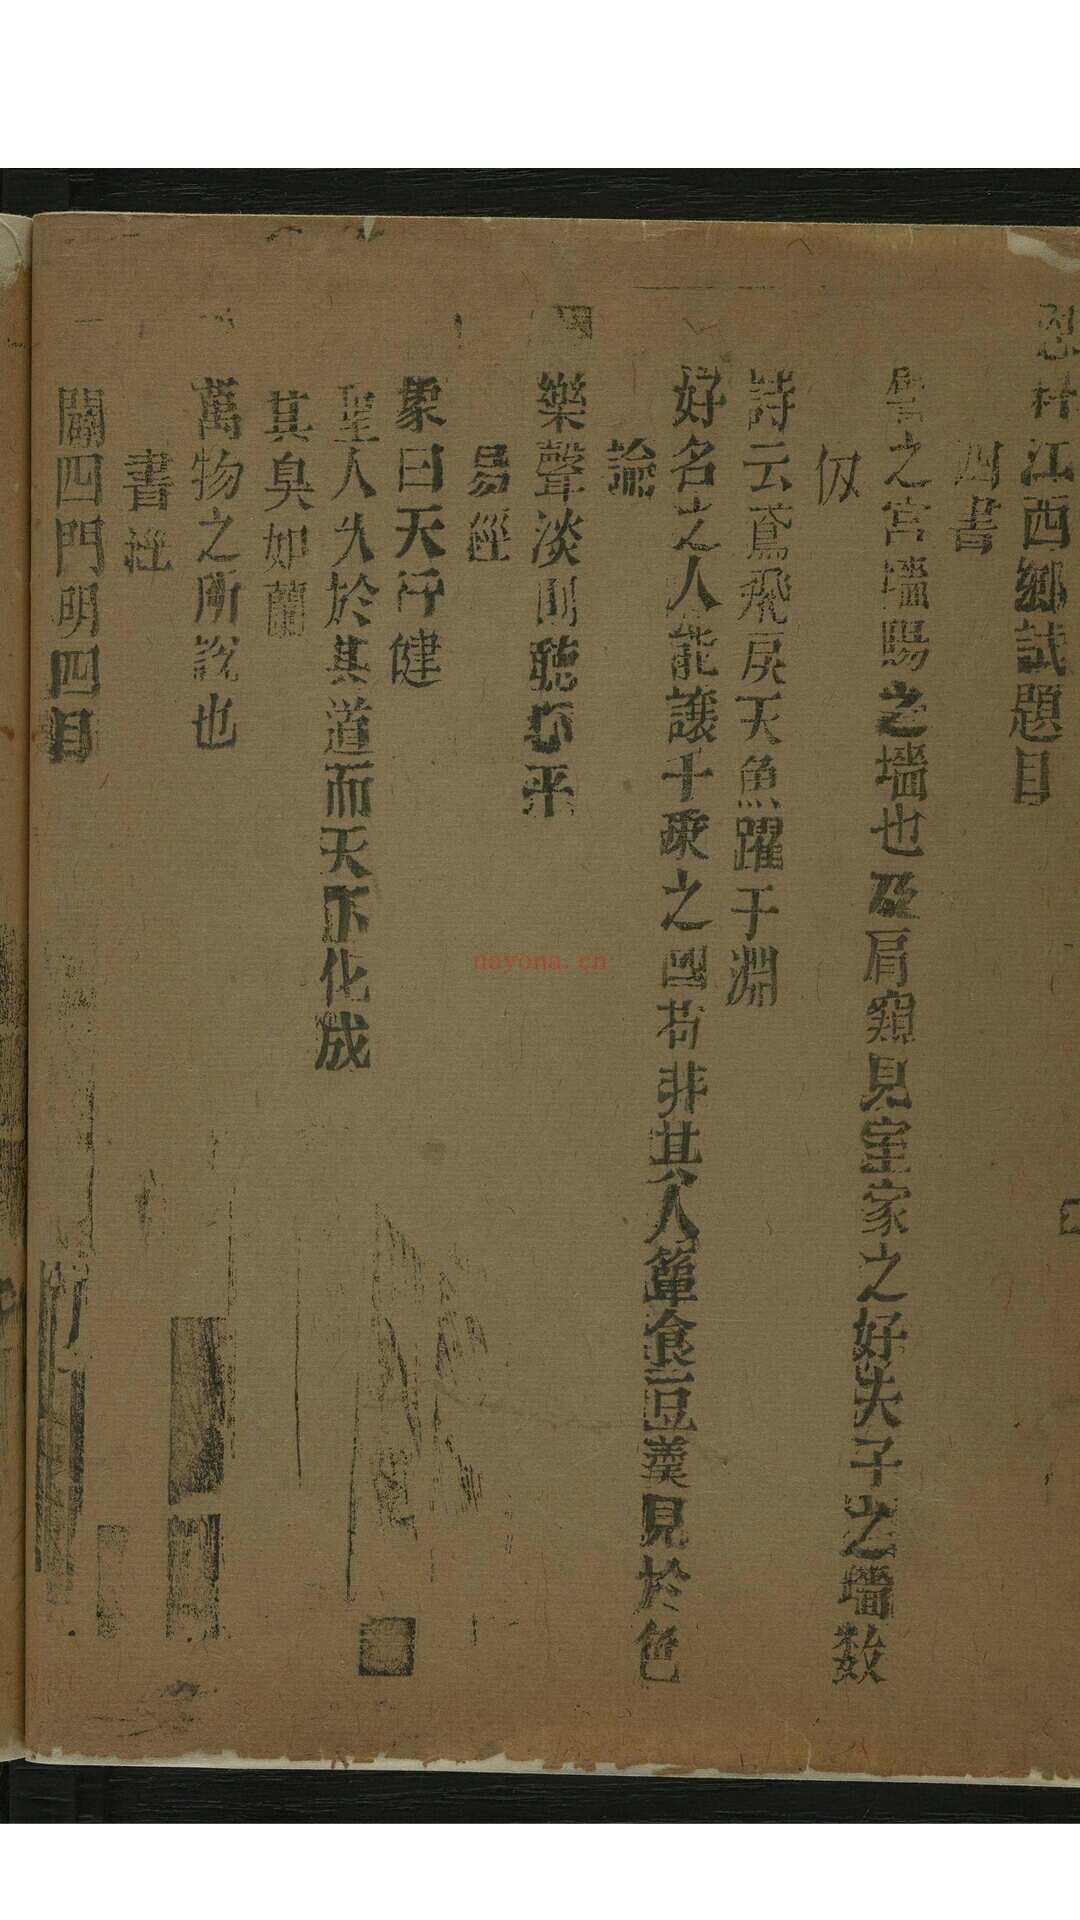 恩科江西鄉試題目
四書
譬之宮墻賜之墻也及肩窺見室家之好夫子之墻数
仭
詩云鳶飛戾天魚躍于淵
好名之人能讓千乘之國苟非其人簞食豆羹見於色
論
樂聲淡則聽心平
易經
象曰天行健
聖人久於其道而天下化成
其臭如蘭
萬物之所說也
書經
闢四門明四目
nayona.cn